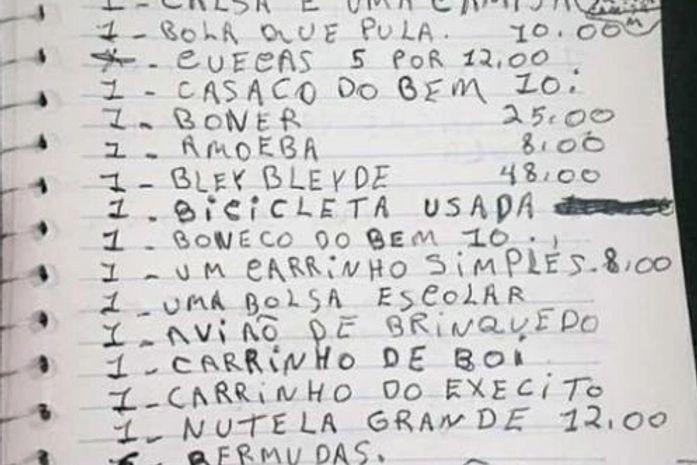 1 - CALSA E UMA CAMISA
1 - BOLA QUE PULA. 10.00
- CUECAS 5 POR 12,00
1 - CASACO DO BEM 10.
1 - BONER 25,00
1 - AMOEBA 8,00
1 - BLEY BLEYDE 48,00
1 - BICICLETA USADA
1 - BONECO DO BEM 10.,
1 - UM CARRINHO SIMPLES. 8,00
1 - UMA BOLSA ESCOLAR
1 - AVIÃO DE BRINQUEDO
1 - CARRINHO DE BOI
1 - CARRINHO DO EXECITO
1 - NUTELA GRANDE 12.00
- BERMUDAS.